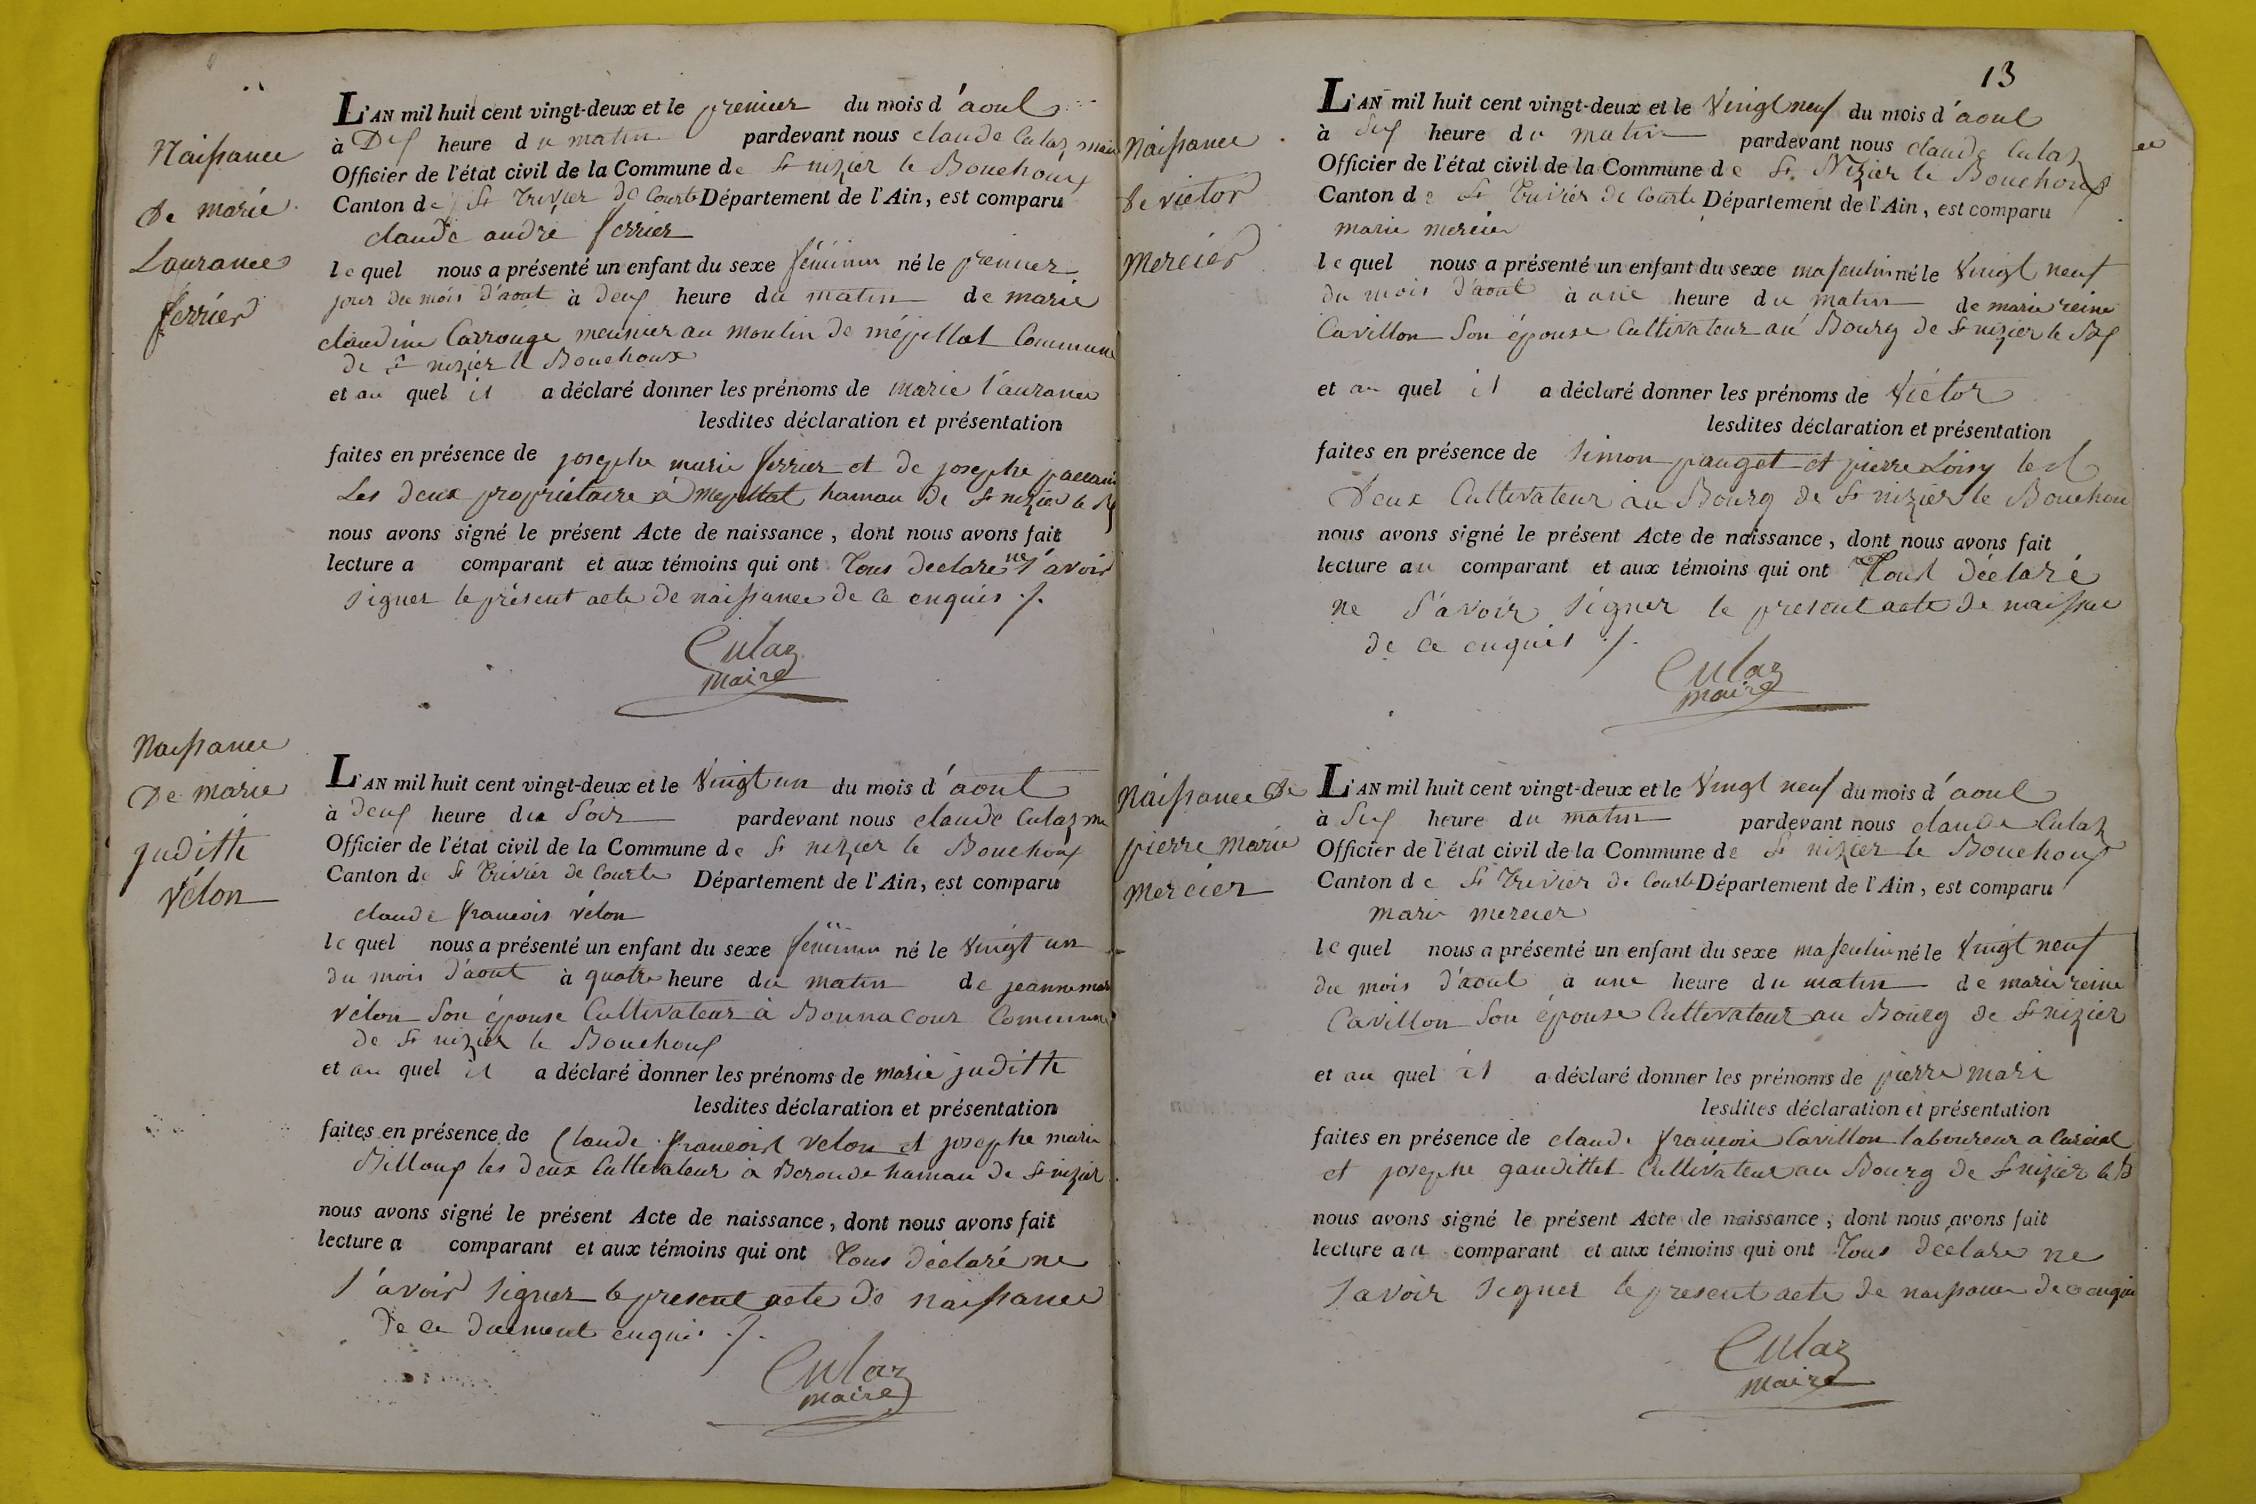 Naissance
De marie
Laurance
ferrier
L'AN mil huit cent vingt-deux et le premier du mois d'aout
à Dix heure du matin pardevant nous claude Culaz maire
Officier de l'état civil de la Commune de St nizier le Bouchoux
Canton de St Trivier de Courte Département de l'Ain, est comparu
claude andré ferrier
lequel nous a présenté un enfant du sexe féminin né le premier
jour du mois d'aout à deux heure du matin de marie
claudine Carrouge meunier au moulin de mépillat Commune
de St nizier le Bouchoux
et au quel il a déclaré donner les prénoms de marie laurance
lesdites déclaration et présentation
faites en présence de josephe marie ferrier et de josephe
Les deux propriétaire à mépillat hamau de St nizier le Bx
nous avons signé le présent Acte de naissance, dont nous avons fait
lecture a comparant et aux témoins qui ont Tous déclaré ne s'avoir
signer le présent acte de naissance de ce enquis ./.
Culaz
maire
Naissance
De marie
juditte
vélon
L'AN mil huit cent vingt-deux et le vingt un du mois d'aout
à deux heure du Soir pardevant nous claude Culaz me
Officier de l'état civil de la Commune de St nizier le Bouchoux
Canton de St Trivier de Courte Département de l'Ain, est comparu
claude francois vélon
lequel nous a présenté un enfant du sexe féminin né le vingt un
du mois d'aout à quatre heure du matin de jeanne mar
vélon Son épouse Cultivateur à Bonnacour Commune
de St nizier le Bouchoux
et au quel il a déclaré donner les prénoms de marie juditte
lesdites déclaration et présentation
faites en présence de Claude francois velon et josephe marie
Billoux les deux Cultivateur à Beroude hamau de St nizier
nous avons signé le présent Acte de naissance, dont nous avons fait
lecture a comparant et aux témoins qui ont Tous déclaré ne
s'avoir signer le present acte de naissance
de ce duement enquis ./.
Culaz
maire
13
Naissance
de victor
Mercier
L'AN mil huit cent vingt-deux et le vingt neuf du mois d'aout
à Six heure du matin pardevant nous claude Culaz
Officier de l'état civil de la Commune de St Nizier le Bouchoux
Canton de St Trivier de Courte Département de l'Ain, est comparu
marie mercier
lequel nous a présenté un enfant du sexe masculin né le vingt neuf
du mois d'aout à une heure du matin de marie reine
Cavillon Son épouse Cultivateur au Bourg de St nizier le Bx
et au quel il a déclaré donner les prénoms de Victor
lesdites déclaration et présentation
faites en présence de Simon pauget et pierre Loisy les
Deux Cultivateur au Bourg de St nizier le Bouchou
nous avons signé le présent Acte de naissance, dont nous avons fait
lecture au comparant et aux témoins qui ont Tous déclaré
ne s'avoir signer le present acte de
de ce enquis ./.
Culaz
maire
Naissance De
pierre Marie
Mercier
L'AN mil huit cent vingt-deux et le vingt neuf du mois d'aout
à Six heure du matin pardevant nous claude Culaz
Officier de l'état civil de la Commune de St nizier le Bouchoux
Canton de St Trivier de Courte Département de l'Ain, est comparu
marie mercier
lequel nous a présenté un enfant du sexe masculin né le vingt neuf
du mois d'aout a une heure du matin de marie reine
Cavillon Son épouse Cultivateur au Bourg de St nizier
et au quel il a déclaré donner les prénoms de pierre Mari
lesdites déclaration et présentation
faites en présence de claude francois Cavillon laboureur a Curciat
et josephe gaudillet Cultivateur au Bourg de St nizier le B
nous avons signé le présent Acte de naissance, dont nous avons fait
lecture au comparant et aux témoins qui ont Tous déclaré ne
savoir signer le present acte de naissance de ce enquis
Culaz
maire